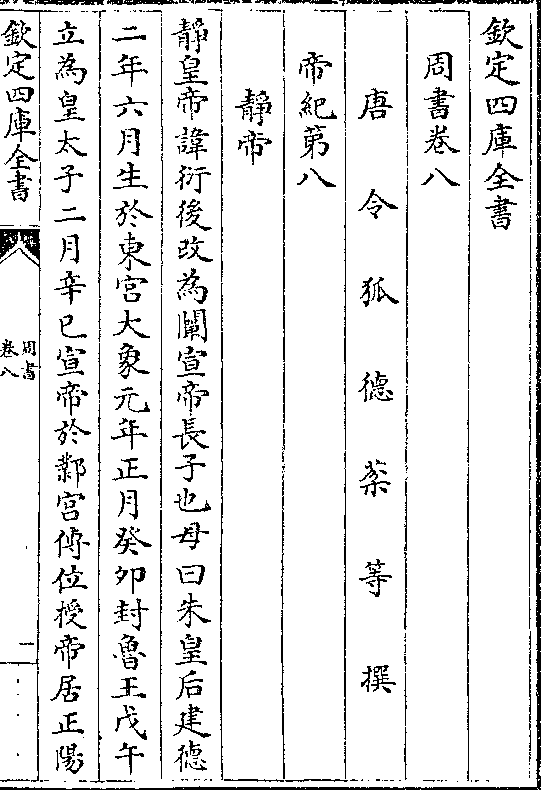 欽定四庫全書
周書卷八
唐令狐德棻等撰
帝紀第八
靜帝
靜皇帝諱衍後改為闡宣帝長子也母曰朱皇后建德
二年六月生於東宮大象元年正月癸卯封魯王戊午
立為皇太子二月辛巳宣帝於鄴宮傳位授帝居正陽
欽定四庫全書
周書
卷八
一